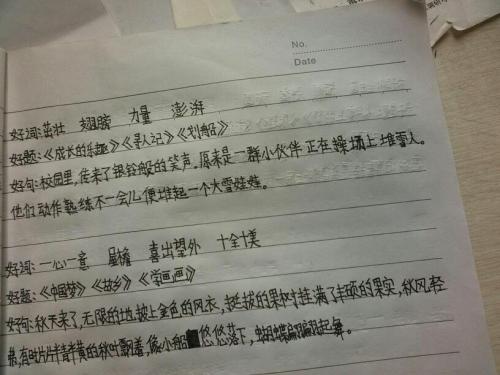 No.
Date
好词:茁壮 翅膀 力量 澎湃
好题:《成长的乐趣》《寻人记》《划船》
好句:校园里,传来了银铃般的笑声。原来是一群小伙伴正在操场上堆雪人。
他们动作熟练不一会儿便堆起一个大雪娃娃。
好词:一心一意 屋檐 喜出望外 十全十美
好题:《中国梦》《故乡》《学画画》
好句:秋天来了,无限的地披上金色的风衣,挺拔的果树挂满了丰硕的果实,秋风轻
片片半青半黄的秋叶飘着,像小船 悠悠落下,蝴蝶翩翩起舞。